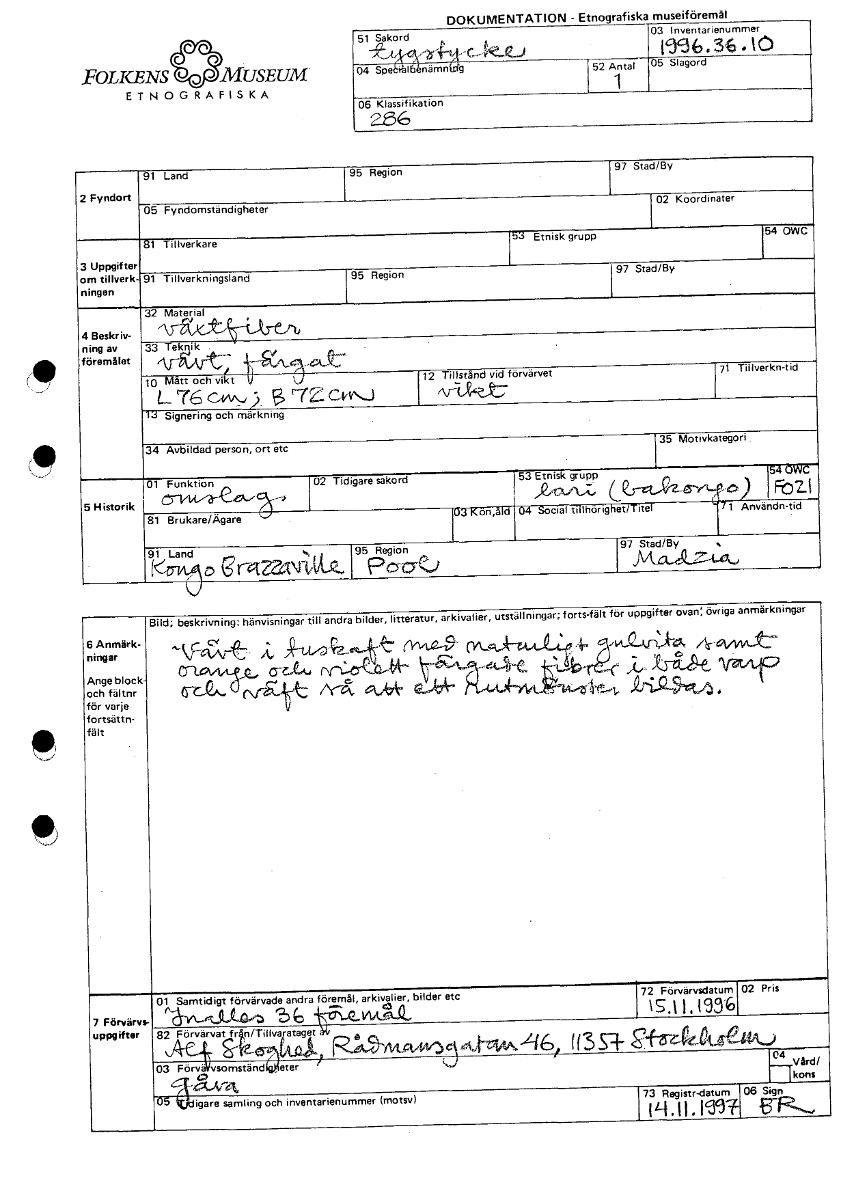 DOKUMENTATION - Etnografiska museiföremål
FOLKENS MUSEUM
ETNOGRAFISKA
51 Sakord
tygstycke
03 Inventarienummer
1996.36.10
04 Specialbenämning
52 Antal
1
05 Slagord
06 Klassifikation
286
2 Fyndort
91 Land
95 Region
97 Stad/By
05 Fyndomständigheter
02 Koordinater
3 Uppgifter
om tillverk-
ningen
81 Tillverkare
53 Etnisk grupp
54 OWC
91 Tillverkningsland
95 Region
97 Stad/By
4 Beskriv-
ning av
föremålet
32 Material
växtfiber
33 Teknik
vävt, färgat
10 Mått och vikt
L 76 cm; B 72 cm
12 Tillstånd vid förvärvet
vikt
71 Tillverkn-tid
13 Signering och märkning
34 Avbildad person, ort etc
35 Motivkategori
5 Historik
01 Funktion
omslag.
02 Tidigare sakord
53 Etnisk grupp
lari (bakongo)
54 OWC
FO21
81 Brukare/Ägare
03 Kön,åld
04 Social tillhörighet/Titel
71 Användn-tid
91 Land
Kongo Brazzaville
95 Region
Pool
97 Stad/By
Madzia
6 Anmärk-
ningar
Ange block-
och fältnr
för varje
fortsättn-
fält
Bild; beskrivning; hänvisningar till andra bilder, litteratur, arkivalier, utställningar; forts-fält för uppgifter ovan; övriga anmärkningar
Vävt i tuskaft med naturligt gulvita samt
orange och violett färgade fibrer i både varp
och väft så att ett rutmönster bildas.
7 Förvärvs-
uppgifter
01 Samtidigt förvärvade andra föremål, arkivalier, bilder etc
Inalles 36 föremål
72 Förvärvsdatum
15.11.1996
02 Pris
82 Förvärvat från/Tillvarataget av
Alf Skoghed, Rådmansgatan 46, 11357 Stockholm
03 Förvärvsomständigheter
gåva
04
Vård/
kons
05 Tidigare samling och inventarienummer (motsv)
73 Registr-datum
14.11.1997
06 Sign
BR